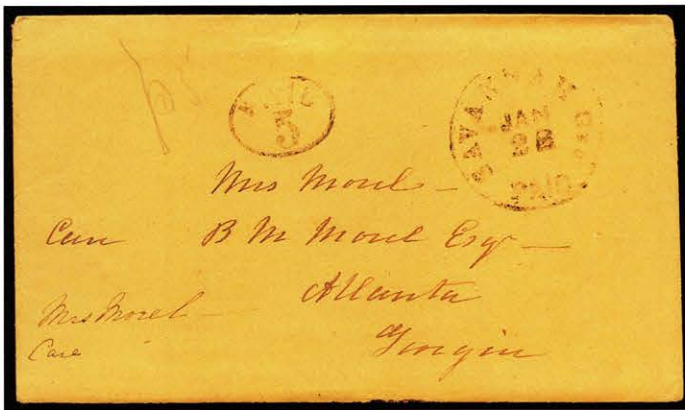 PAID
5
SAVANNAH
JAN
28
PAID
Mrs Morel
Care B M Morel Esqr
Atlanta
Georgia
Mrs Morel
Care